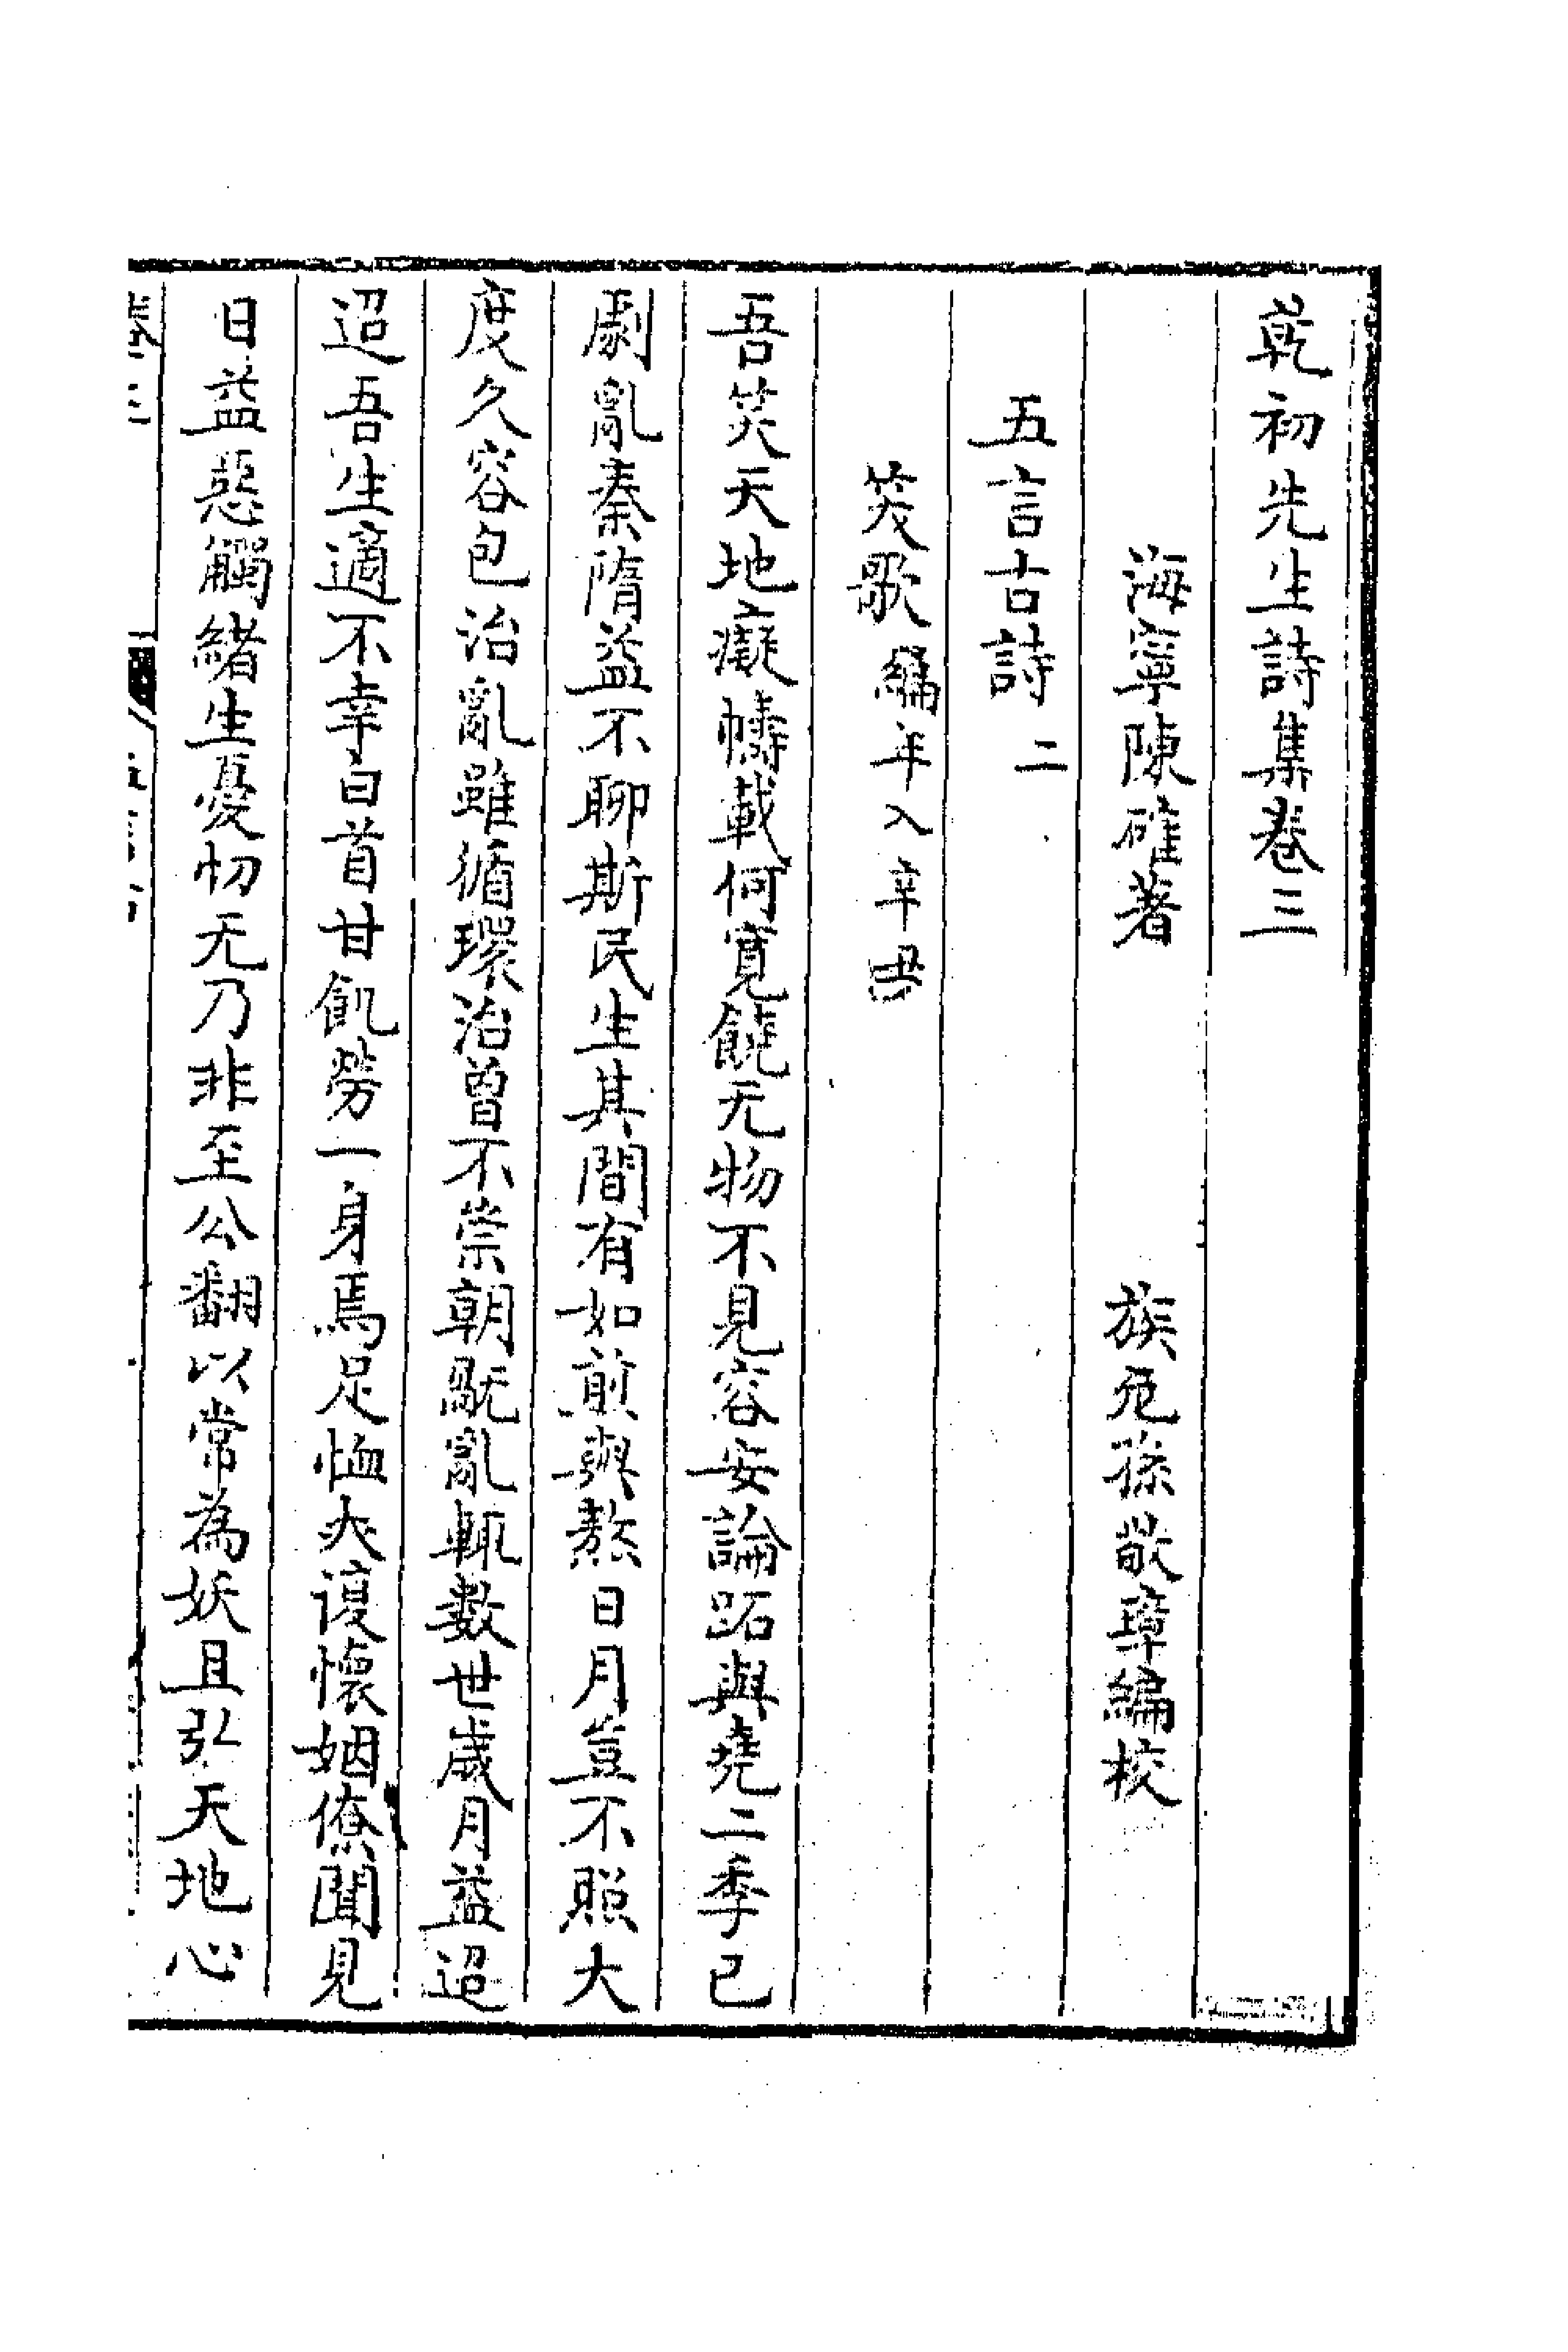 乾初先生詩集卷三
海寧陳確著　族㐾孫敬璋編校
五言古詩二
笑歌編年入辛丑
吾笑天地癡幬載何寬饒无物不見容安論跖與堯二季已
劇亂秦隋益不聊斯民生其間有如煎與熬日月豈不照大
度久容包治亂雖循環治曾不崇朝既亂輒數世歲月益迢
迢吾生適不幸白首甘飢勞一身焉足恤夾諼懷姻僚聞見
日益惡觸緒生憂忉无乃非至公翻以常為妖且弘天地心